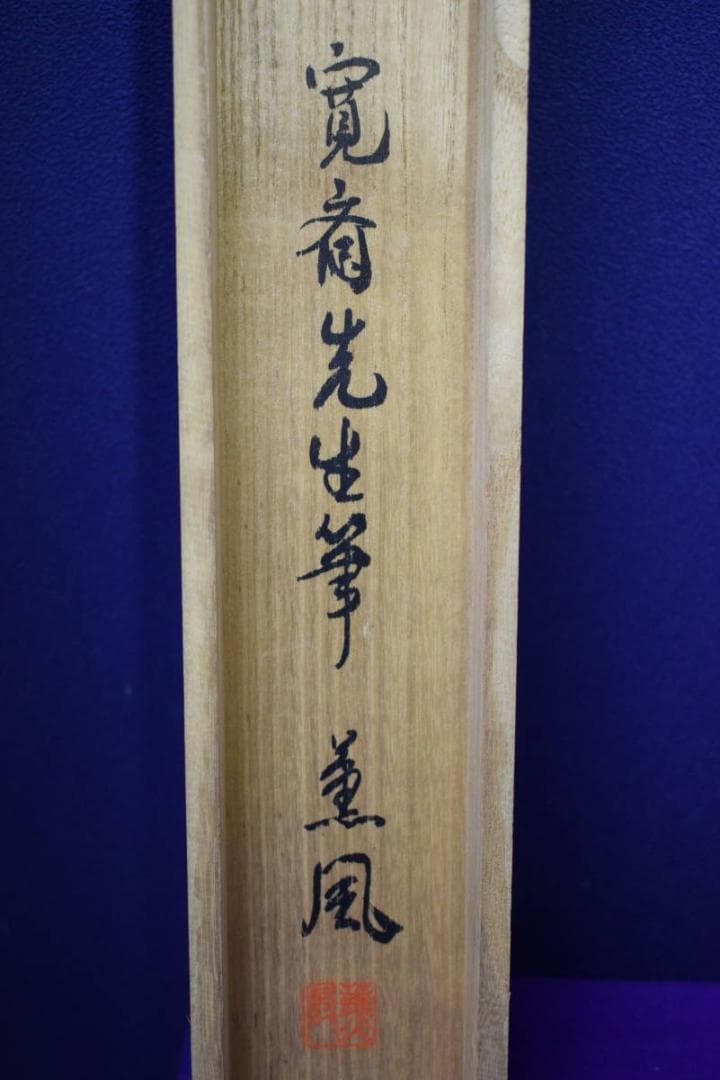 寛斎先生筆 薫風